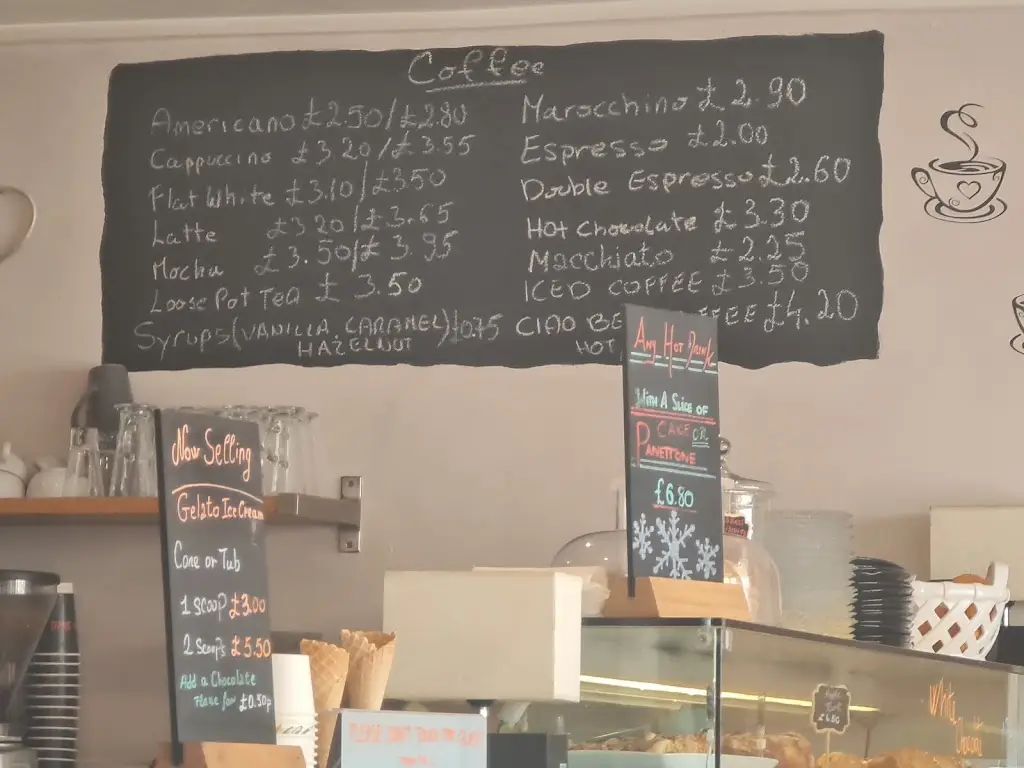 Coffee
Americano £2.50/£2.80
Cappuccino £3.20/£3.55
Flat White £3.10/£3.50
Latte £3.20/£3.65
Mocha £3.50/£3.95
Loose Pot Tea £3.50
Syrups (VANILLA, CARAMEL) £0.75
HAZELNUT
Marocchino £2.90
Espresso £2.00
Double Espresso £2.60
Hot Chocolate £3.30
Macchiato £2.25
ICED COFFEE £3.50
CIAO £4.20
HOT
Any Hot Drink
With A Slice of
CAKE OR
PANETTONE
£6.80
Now Selling
Gelato Ice Cream
Cone or Tub
1 scoop £3.00
2 scoops £5.50
Add a Chocolate
Flake for £0.50p
PLEASE DON'T